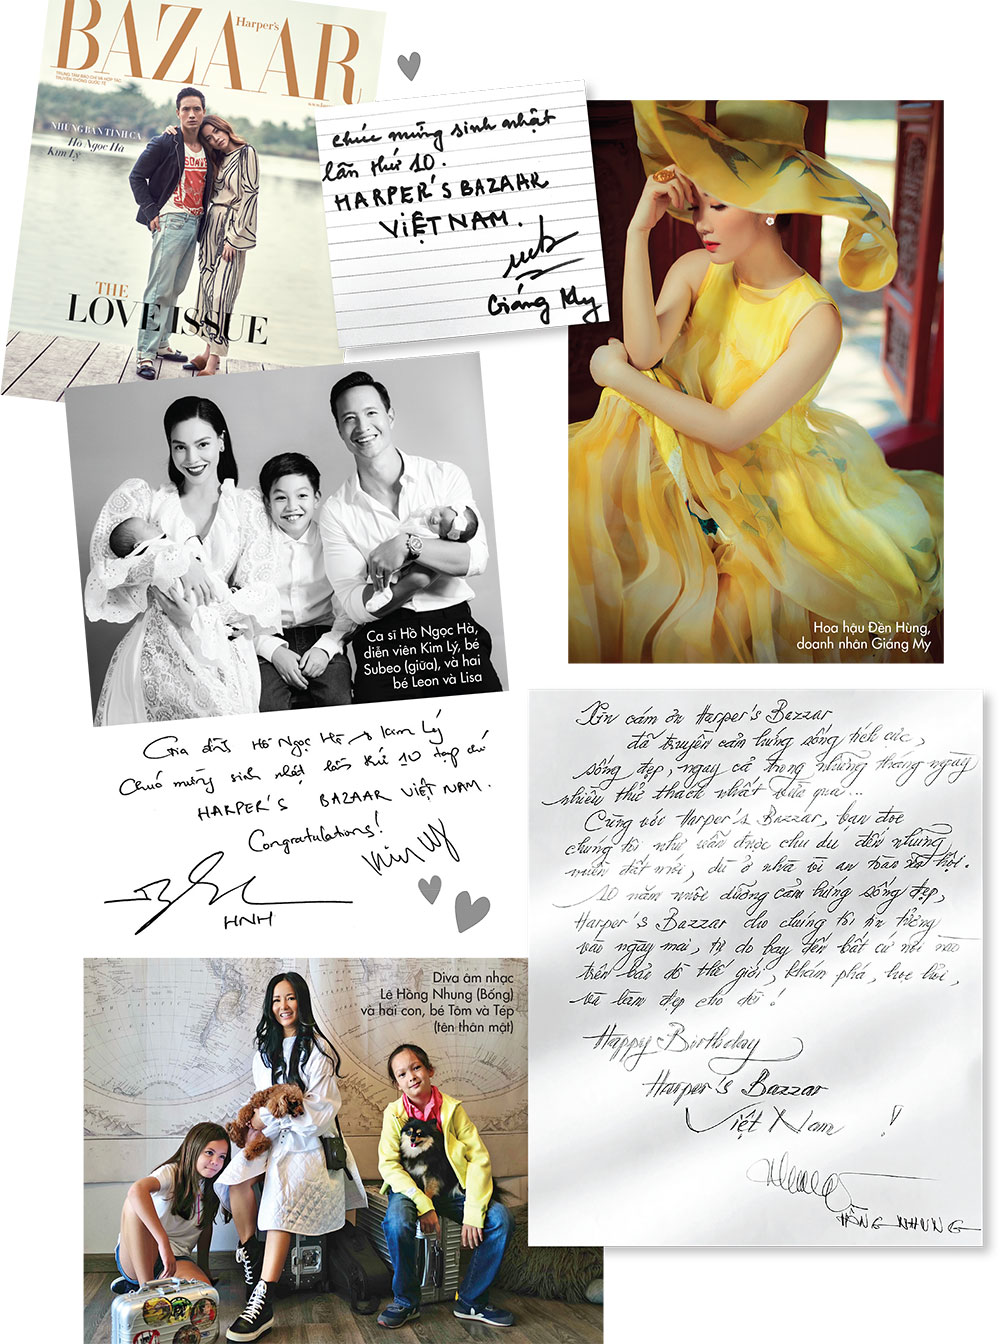 Harper's
BAZAAR
TRUNG TÂM BÁO CHÍ VÀ HỢP TÁC
TRUYỀN THÔNG QUỐC TẾ
NHỮNG BẢN TÌNH CA
Hồ Ngọc Hà
Kim Lý
THE
LOVE ISSUE
chúc mừng sinh nhật
lần thứ 10.
HARPER'S BAZAAR
VIỆT NAM.
Giáng My
Hoa hậu Đền Hùng,
doanh nhân Giáng My
Ca sĩ Hồ Ngọc Hà,
diễn viên Kim Lý, bé
Subeo (giữa), và hai
bé Leon và Lisa
Gia đình Hồ Ngọc Hà & Kim Lý
Chúc mừng sinh nhật lần thứ 10 tạp chí
HARPER'S BAZAAR VIỆT NAM.
Congratulations!
Kim Lý
HNH
Xin cám ơn Harper's Bazzar
đã truyền cảm hứng sống tích cực,
sống đẹp, ngay cả trong những tháng ngày
nhiều thử thách nhất vừa qua...
Cùng với Harper's Bazzar, bạn đọc
chúng tôi như vẫn được chu du đến những
miền đất mới, dù ở nhà vì an toàn xã hội.
10 năm nuôi dưỡng cảm hứng sống đẹp,
Harper's Bazzar cho chúng tôi tin tưởng
vào ngày mai, tự do bay đến bất cứ nơi nào
trên bản đồ thế giới, khám phá,
và làm đẹp cho đời!
Happy Birthday
Harper's Bazzar
Việt Nam !
HỒNG NHUNG
Diva âm nhạc
Lê Hồng Nhung (Bống)
và hai con, bé Tôm và Tép
(tên thân mật)